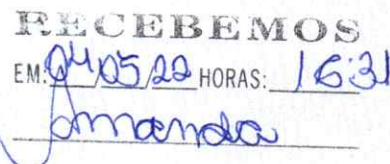 RECEBEMOS
EM: 04/05/22 HORAS: 16:31
Amanda